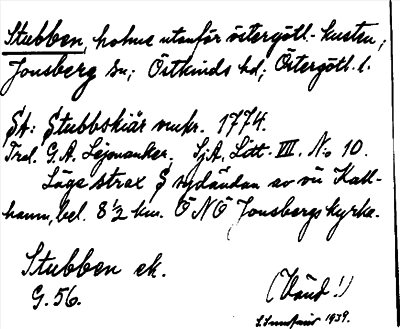 Stubben, holme utanför östergötl.-kusten;
Jonsberg sn; Östkinds hd; Östergötl. l.
SA: Stubbskiär omkr. 1774.
Trol. G.A. Lejonanker. SjA, Litt. VII. No 10.
Läge strax S sydändan av ön Kall-
hamn, bel. 8 1/2 km. ÖNÖ Jonsbergs kyrka.
Stubben ek.
G. 56.
(Vänd!)
1939.